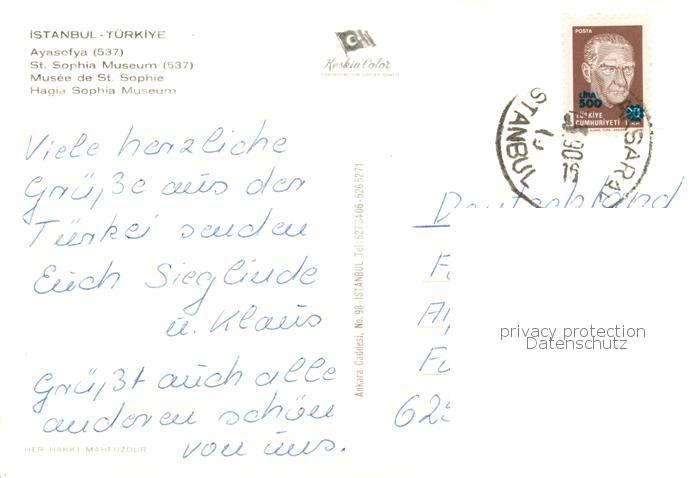 İSTANBUL - TÜRKİYE
Ayasofya (537)
St. Sophia Museum (537)
Musée de St. Sophie
Hagia Sophia Museum
Keskin Color
POSTA
LİRA
500
20
TÜRKİYE
CUMHURİYETİ
Viele herzliche
Grüße aus der
Türkei senden
Euch Sieglinde
u. Klaus
Grüßt auch alle
anderen schön
von uns.
HER HAKKI MAHFUZDUR
Ankara Caddesi, No. 98 - İSTANBUL Tel: 5273406-5266271
Deutschland
privacy protection
Datenschutz